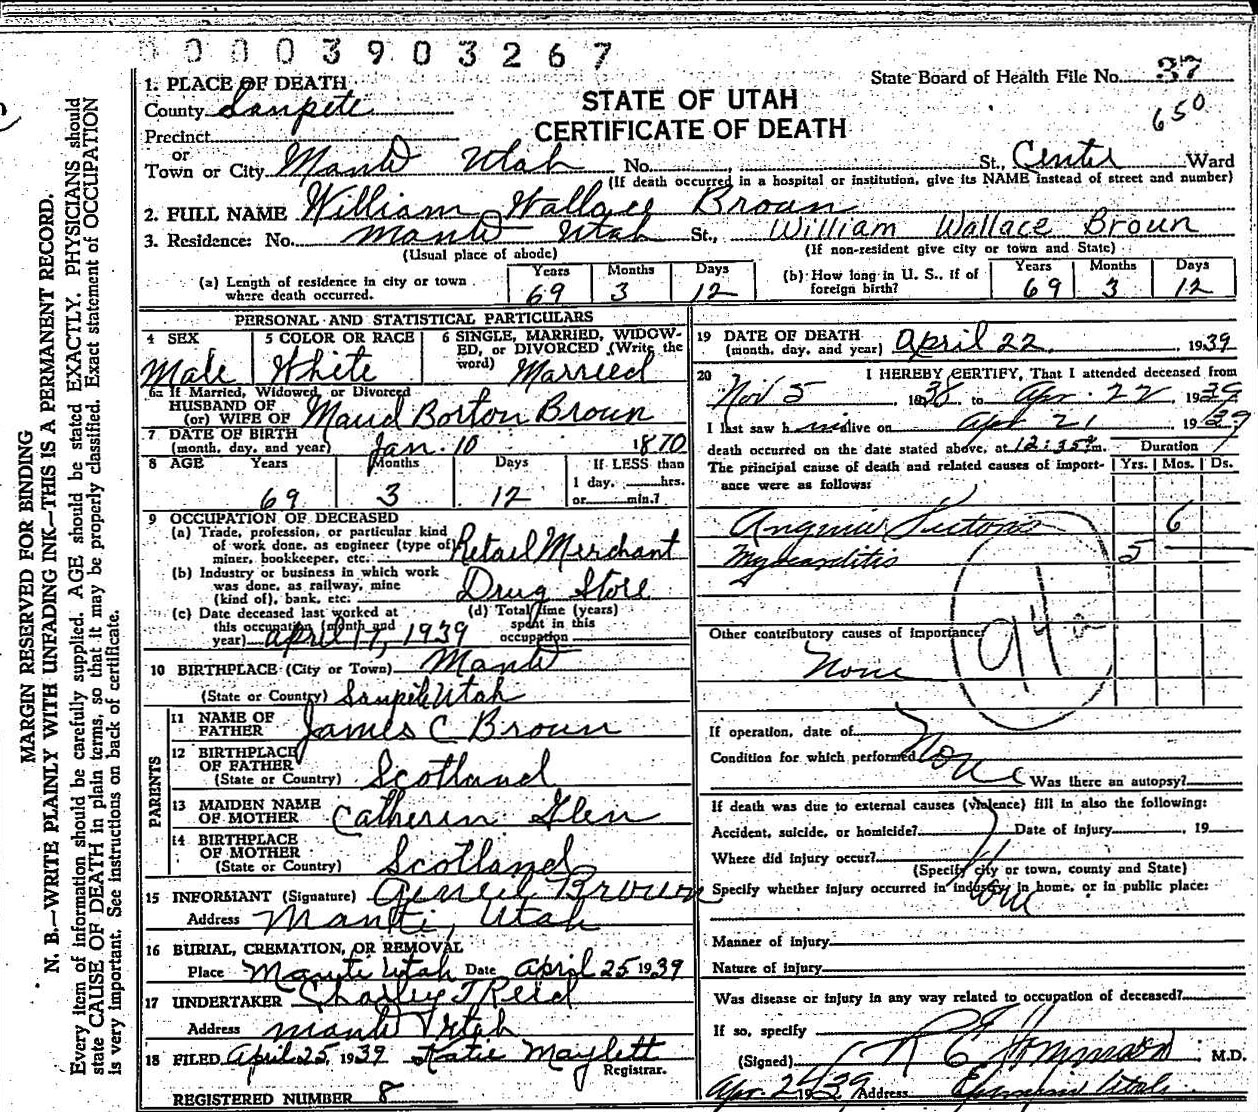 0 0 0 0 3 9 0 3 2 6 7
State Board of Health File No. 37
650
STATE OF UTAH
CERTIFICATE OF DEATH
1. PLACE OF DEATH
County Sanpete
Precinct
or
Town or City Manti Utah No. St., Center Ward
(If death occurred in a hospital or institution, give its NAME instead of street and number)
2. FULL NAME William Wallace Broun
3. Residence: No. Manti Utah St., William Wallace Broun
(Usual place of abode) (If non-resident give city or town and State)
(a) Length of residence in city or town where death occurred. Years 69 Months 3 Days 12
(b) How long in U. S., if of foreign birth? Years 69 Months 3 Days 12
PERSONAL AND STATISTICAL PARTICULARS
4 SEX Male
5 COLOR OR RACE White
6 SINGLE, MARRIED, WIDOWED, or DIVORCED (Write the word) Married
6a If Married, Widowed, or Divorced
HUSBAND OF
(or) WIFE OF Maud Borton Broun
7 DATE OF BIRTH
(month, day, and year) Jan. 10 1870
8 AGE Years 69 Months 3 Days 12 If LESS than
1 day, hrs.
or min.?
9 OCCUPATION OF DECEASED
(a) Trade, profession, or particular kind
of work done, as engineer (type of)
miner, bookkeeper, etc. Retail Merchant
(b) Industry or business in which work
was done, as railway, mine
(kind of), bank, etc. Drug Store
(c) Date deceased last worked at
this occupation (month and
year) April 17, 1939
(d) Total time (years)
spent in this
occupation
10 BIRTHPLACE (City or Town) Manti
(State or Country) Sanpete Utah
PARENTS
11 NAME OF
FATHER James C Broun
12 BIRTHPLACE
OF FATHER
(State or Country) Scotland
13 MAIDEN NAME
OF MOTHER Catherin Glen
14 BIRTHPLACE
OF MOTHER
(State or Country) Scotland
15 INFORMANT (Signature) Broun
Address Manti, Utah
16 BURIAL, CREMATION, OR REMOVAL
Place Manti Utah Date April 25 1939
17 UNDERTAKER Charley J Reid
Address Manti Utah
18 FILED April 25, 1939 Katie Maylett
Registrar.
REGISTERED NUMBER 8
19 DATE OF DEATH
(month, day, and year) April 22, 1939
20 I HEREBY CERTIFY, That I attended deceased from
Nov 5 1938, to Apr. 22 1939
I last saw him alive on Apr 21 1939
death occurred on the date stated above, at 12:35 m.
Duration
The principal cause of death and related causes of importance were as follows:
Yrs. Mos. Ds.
Angina Pectoris 6
Myocarditis 5
94a
Other contributory causes of importance
None
If operation, date of
Condition for which performed None
Was there an autopsy?
If death was due to external causes (violence) fill in also the following:
Accident, suicide, or homicide? Date of injury , 19
Where did injury occur?
(Specify city or town, county and State)
Specify whether injury occurred in industry, in home, or in public place:
None
Manner of injury
Nature of injury
Was disease or injury in any way related to occupation of deceased?
If so, specify
(Signed) M.D.
Apr. 24 1939 Address Ephraim Utah
MARGIN RESERVED FOR BINDING
N. B.—WRITE PLAINLY WITH UNFADING INK—THIS IS A PERMANENT RECORD.
Every item of information should be carefully supplied. AGE should be stated EXACTLY. PHYSICIANS should
state CAUSE OF DEATH in plain terms, so that it may be properly classified. Exact statement of OCCUPATION
is very important. See instructions on back of certificate.